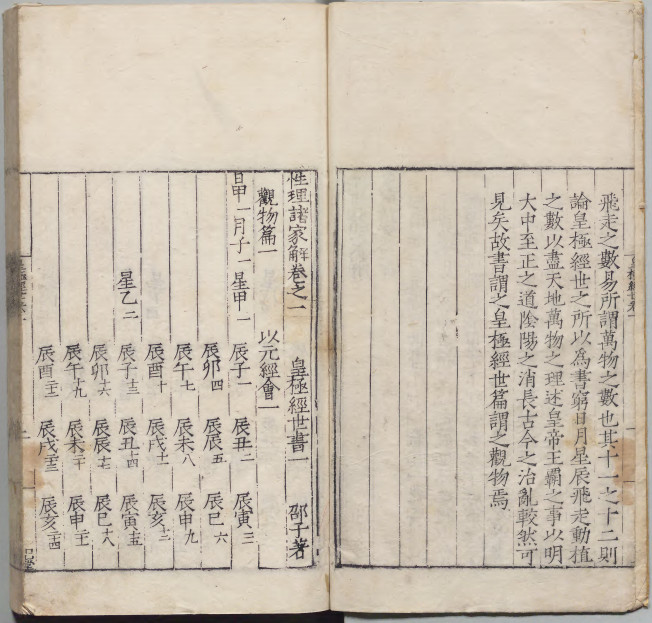 飛走之數易所謂萬物之數也其十一之十二則
論皇極經世之所以為書窮日月星辰飛走動植
之數以盡天地萬物之理述皇帝王霸之事以明
大中至正之道陰陽之消長古今之治亂較然可
見矣故書謂之皇極經世篇謂之觀物焉
性理諸家解卷之一 皇極經世書一 邵子著
觀物篇一 以元經會一
日甲一月子一星甲一 辰子一 辰丑二 辰寅三
辰卯四 辰辰五 辰巳六
辰午七 辰未八 辰申九
辰酉十 辰戌十一 辰亥十二
星乙二 辰子十三 辰丑十四 辰寅十五
辰卯十六 辰辰十七 辰巳十八
辰午十九 辰未二十 辰申二十一
辰酉二十二 辰戌二十三 辰亥二十四